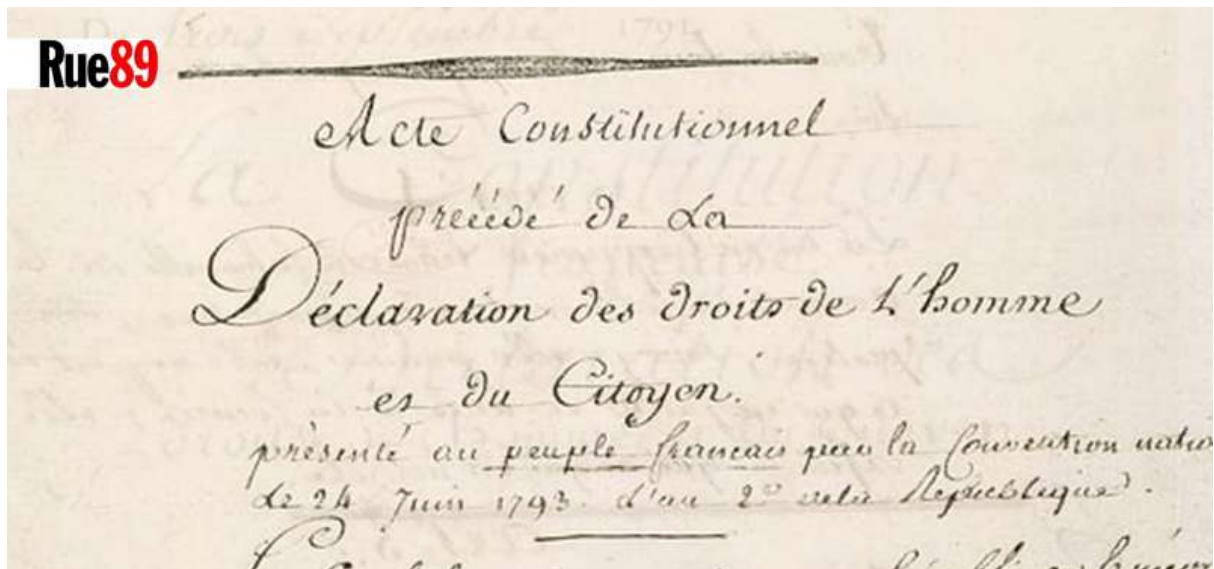 Rue89
Acte Constitutionnel
précédé de La
Déclaration des droits de L'homme
et du Citoyen.
présenté au peuple français par la Convention natio
Le 24 Juin 1793. L'an 2e de la République.